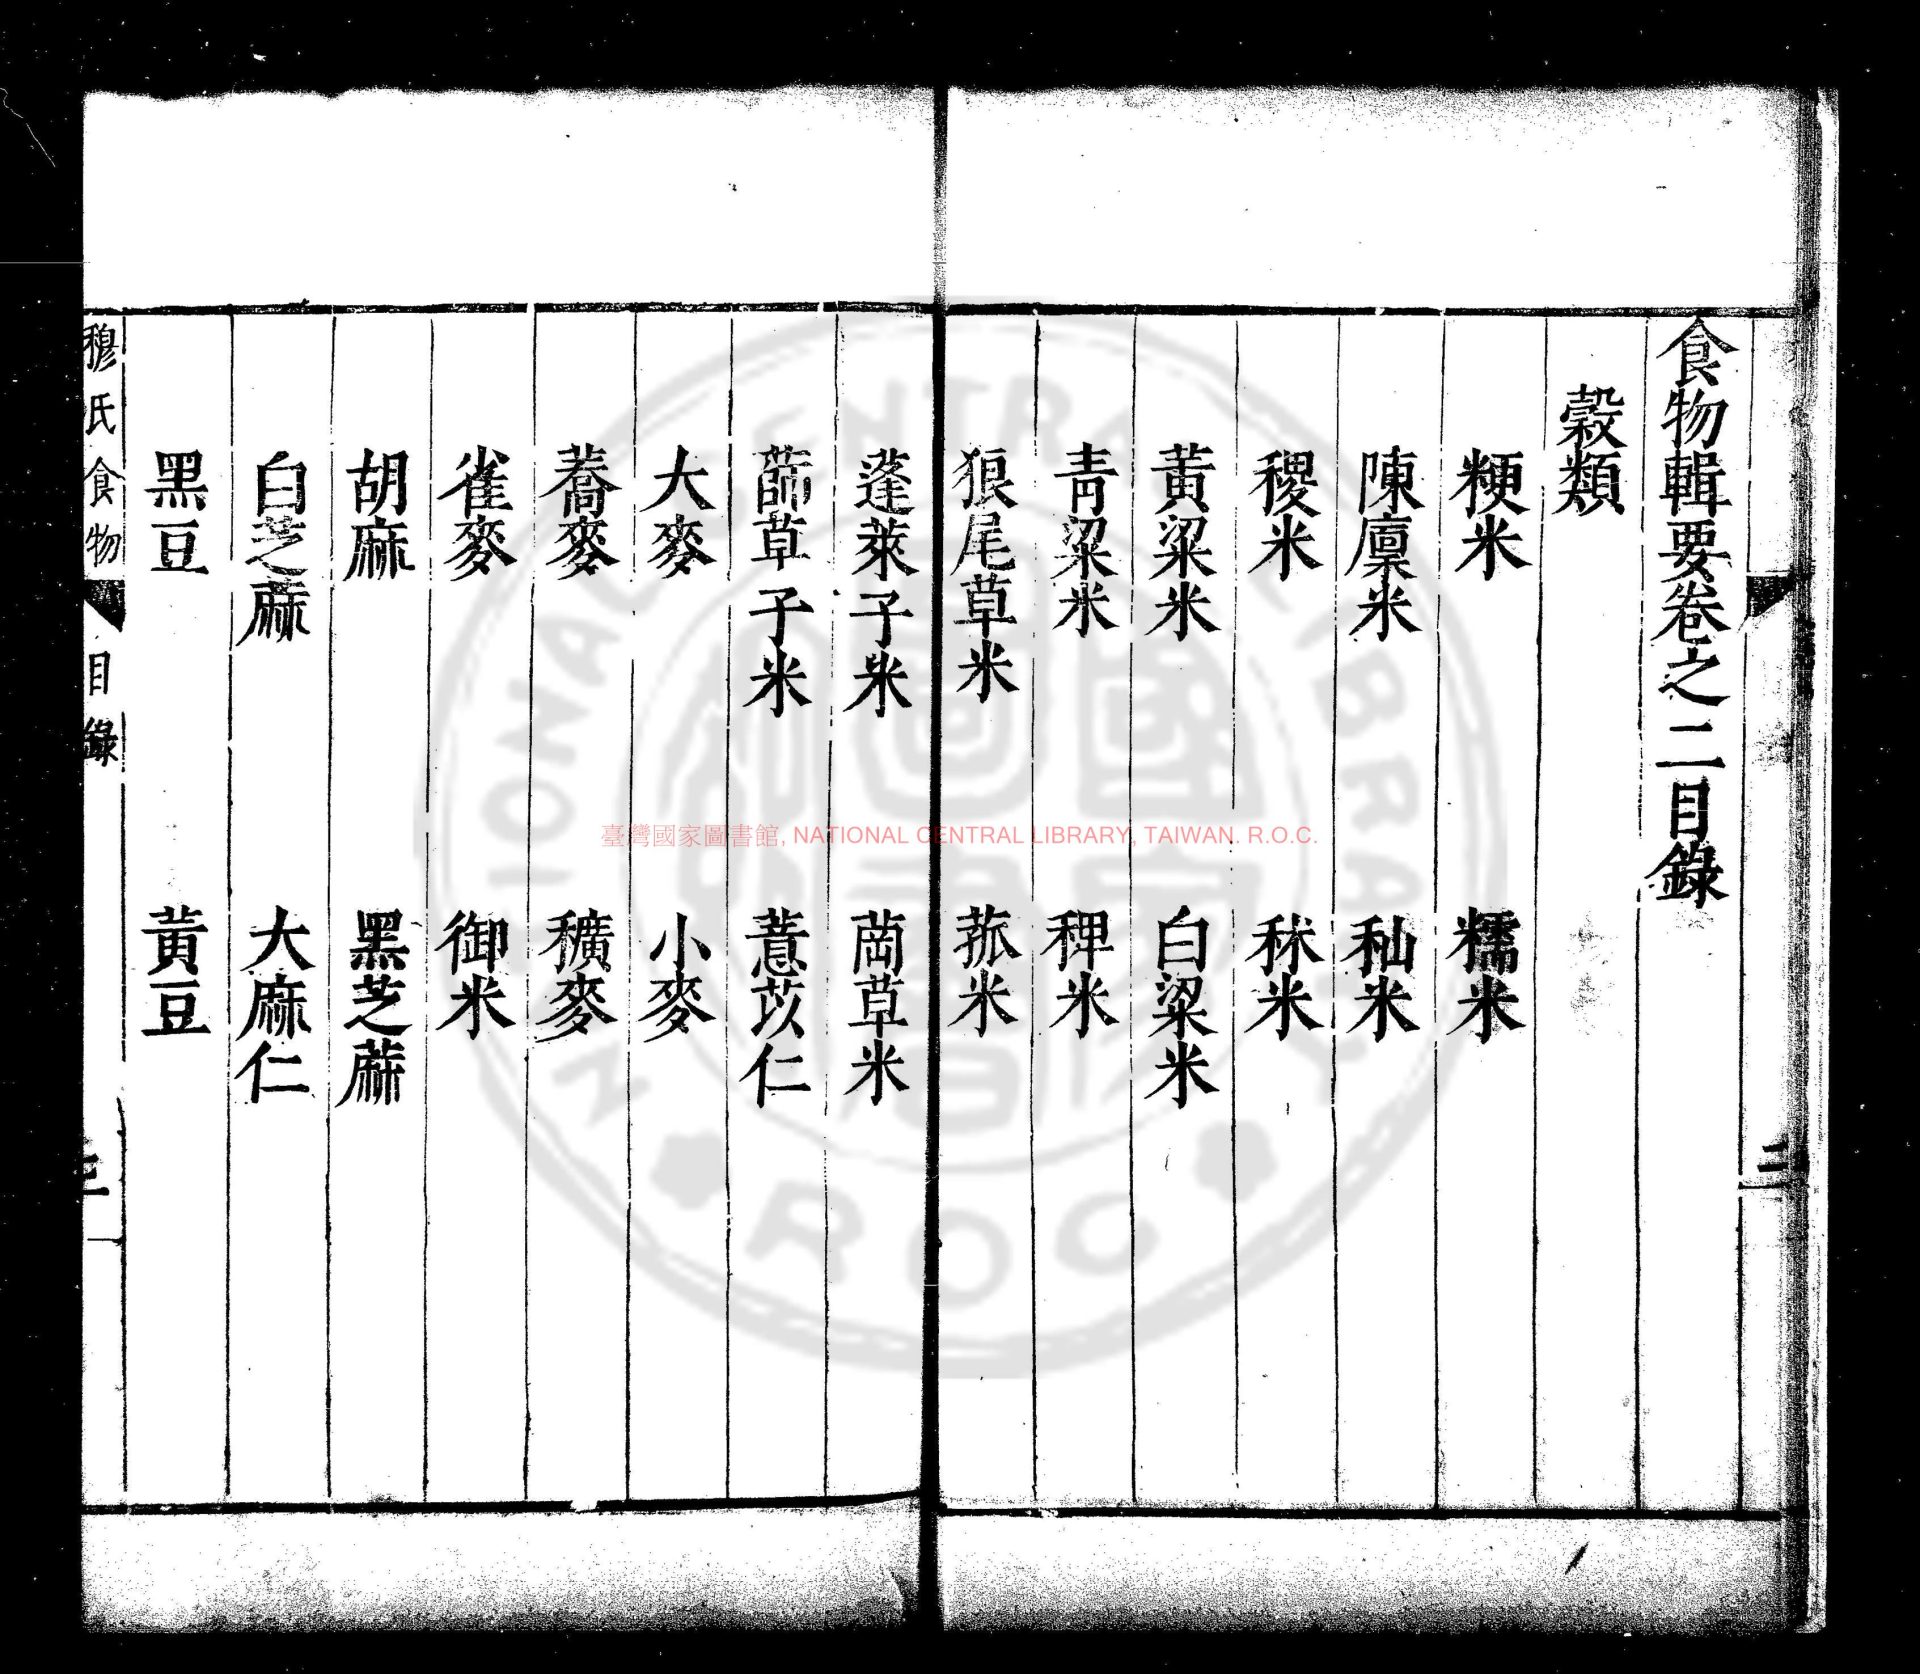 食物輯要卷之二目錄
穀類
粳米 糯米
陳廩米 秈米
稷米 秫米
黃粱米 白粱米
青粱米 稗米
狼尾草米 菰米
蓬萊子米 䒢草米
蒒草子米 薏苡仁
大麥 小麥
蕎麥 穬麥
雀麥 御米
胡麻 黑芝蔴
白芝蔴 大麻仁
黑豆 黃豆
穆氏食物 目錄
臺灣國家圖書館, NATIONAL CENTRAL LIBRARY, TAIWAN. R.O.C.
NATIONAL CENTRAL LIBRARY
ROC